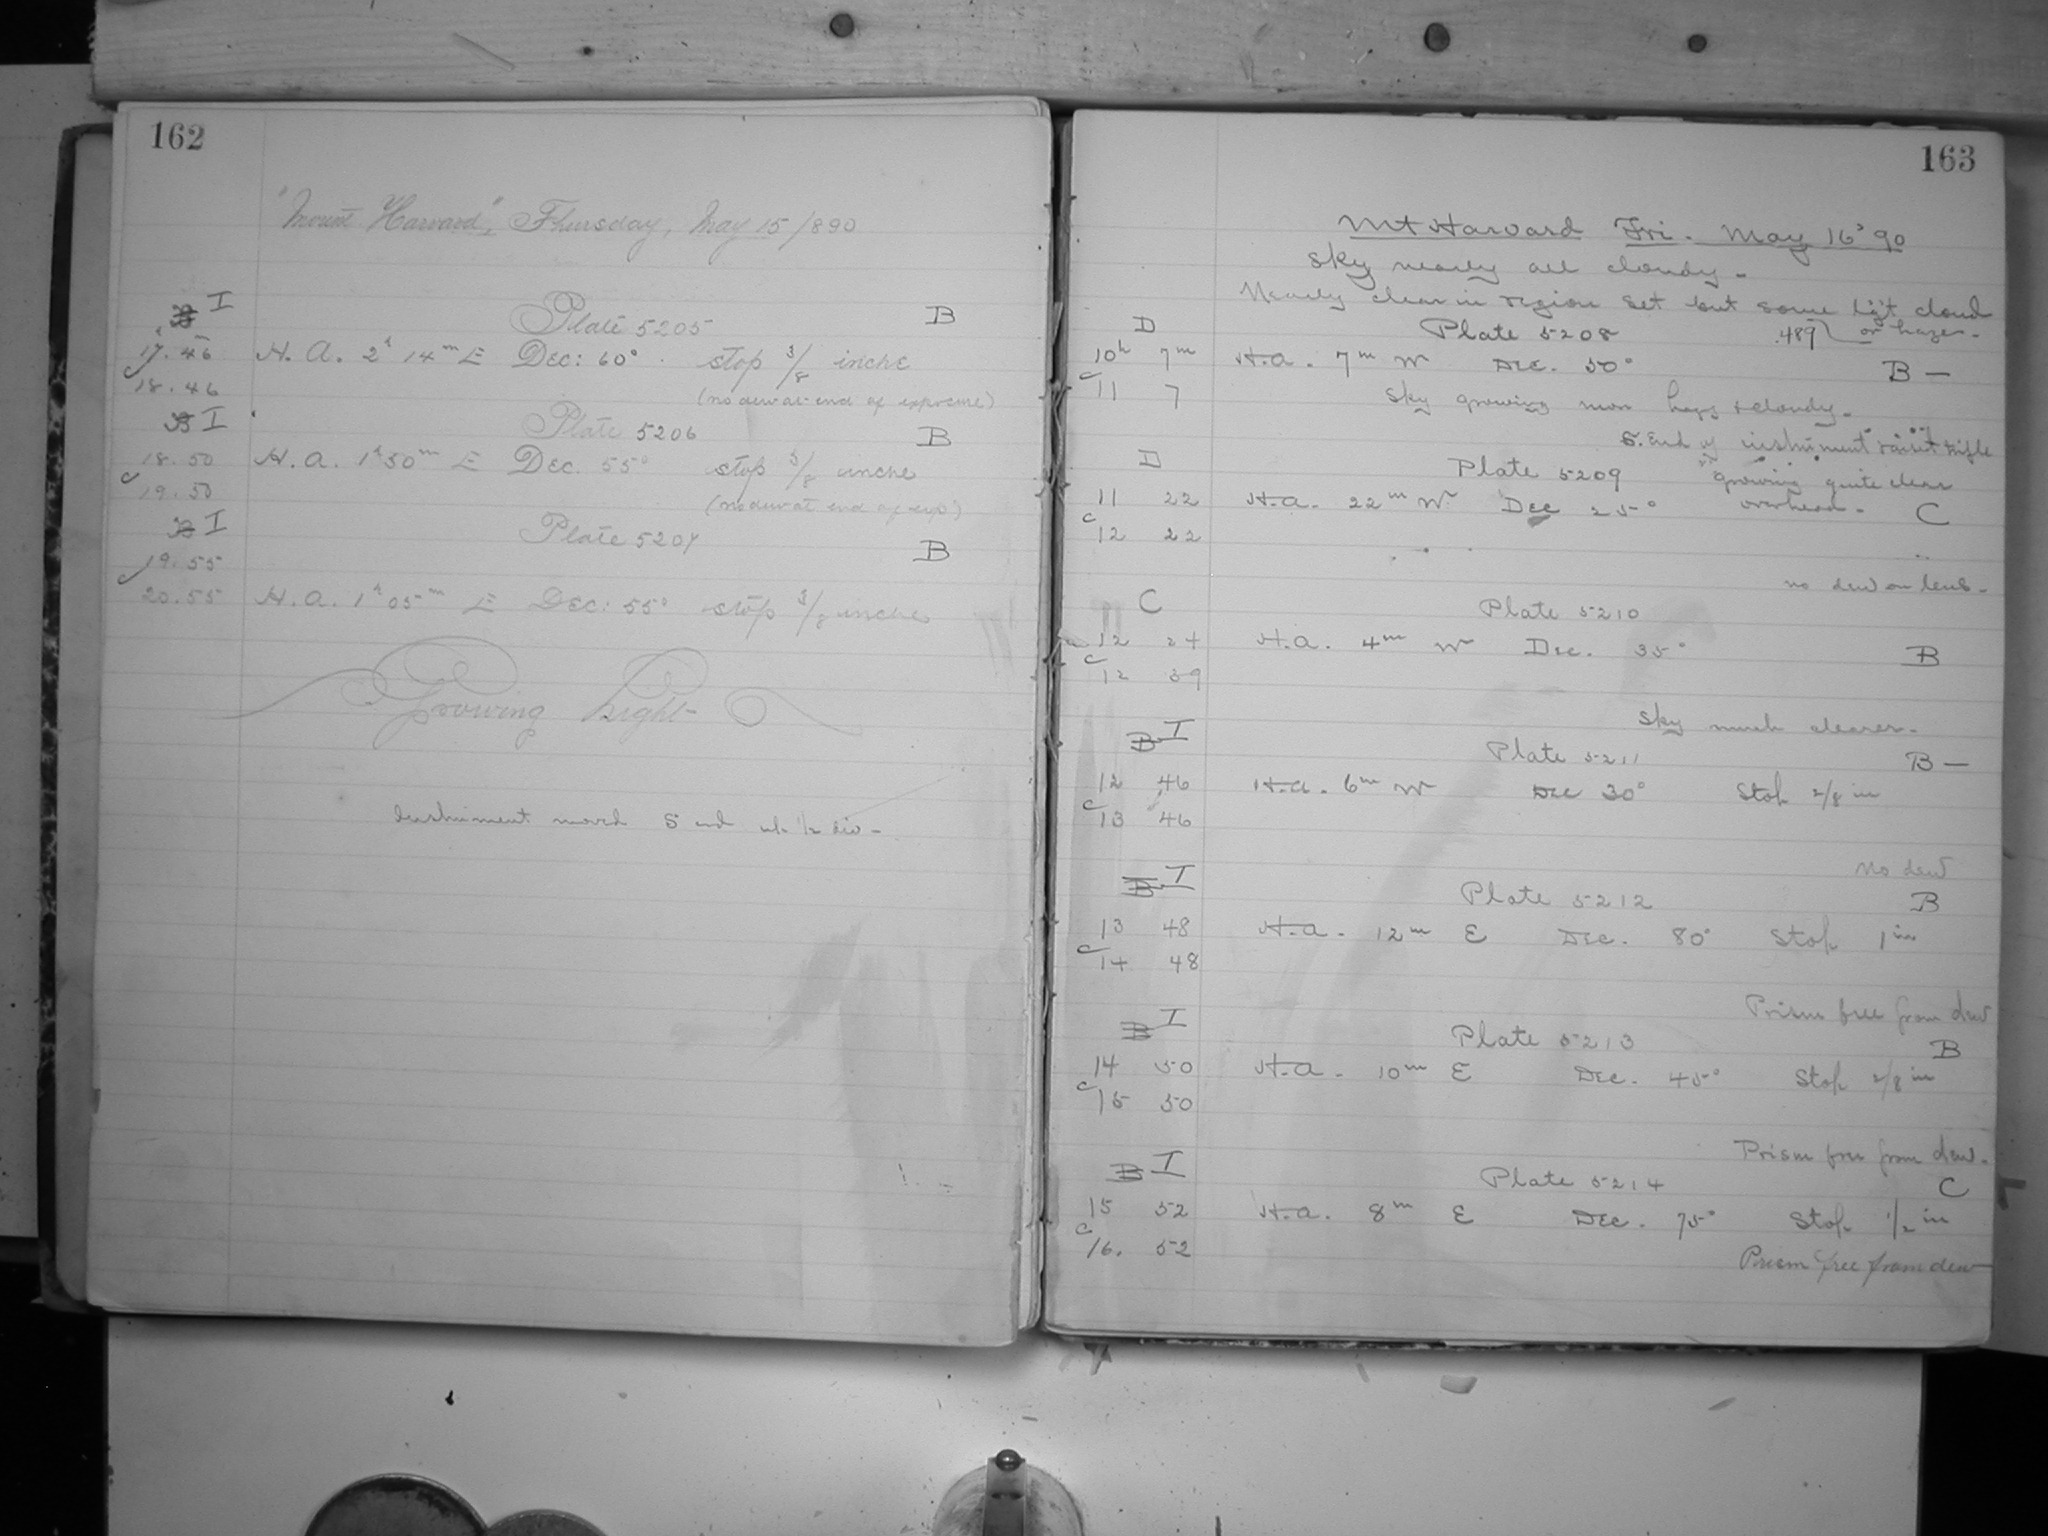 162
"Mount Harvard", Thursday, May 15/890
B I
Plate 5205 B
17.46 H.A. 2h 14m E Dec: 60° stop 3/8 inche
18.46 (no dew at end of exposure)
B I
Plate 5206 B
18.50 H.A. 1h 50m E Dec. 55° stop 3/8 inche
19.50 (no dew at end of exp)
B I
Plate 5207 B
19.55
20.55 H.A. 1h 05m E Dec: 55° stop 3/8 inche
Growing light
Instrument moved S end 1/2 div -
163
Mt Harvard Fri. May 16 '90
Sky nearly all cloudy -
Nearly clear in region set but some light cloud
D Plate 5208 .489 or haze -
10h 7m H.A. 7m W Dec. 50° B -
C 11 7 Sky growing more hazy & cloudy -
S. End of instrument raised trifle
D Plate 5209 growing quite clear
11 22 H.A. 22m W Dec 25° overhead - C
C 12 22
no dew on lens -
C Plate 5210
12 24 H.A. 4m W Dec. 35° B
C 12 39
Sky much clearer -
B I Plate 5211 B -
12 46 H.A. 6m W Dec 30° Stop 2/8 in
C 13 46
No dew
B I Plate 5212 B
13 48 H.A. 12m E Dec. 80° Stop 1 in
C 14 48
Prism free from dew
B I Plate 5213 B
14 50 H.A. 10m E Dec. 45° Stop 2/8 in
C 15 50
Prism free from dew -
B I Plate 5214 C
15 52 H.A. 8m E Dec. 75° Stop 1/2 in
C 16. 52
Prism free from dew